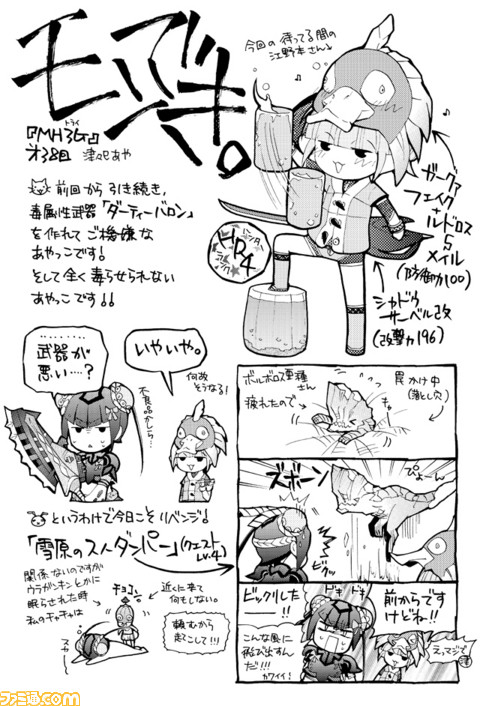 モバでき。
『MH3G』
トライ
オ38回 津々巳あや
今回の待ってる間の
江野本さん
ガーグァ
フェイク+
ルドロス
Sメイル
(防御力100)
シャドウ
サーベル改
(攻撃力196)
ハンター
HR4
ランク
前回から引き続き、
毒属性武器「ダーティーバロン」
を作れてご機嫌な
あやっこです!
そして全く毒らせられない
あやっこです!!
いやいや。
武器が
悪い……?
不良品かしら…
何故
そうなる!
というわけで今日こそリベンジ!
「雪原のスノウダンパー」(クエスト
Lv.4)
関係ないのですが
ウラガンキンとかに
眠らされた時
私のチャチャは
チョコン
近くに来て
何もしない。
頼むから
起こして!!!
スヤ
ボルボロス亜種
さん
疲れたので
罠かけ中
(落とし穴)
ズボーン
ぴょーん
ビクッ
ビックリした
ーー!!
こんな風に
飛び出すん
だ!!!
カワイイ!
ドキ ドキ
前からです
けどね!!
えっマジで
ファミ通.com